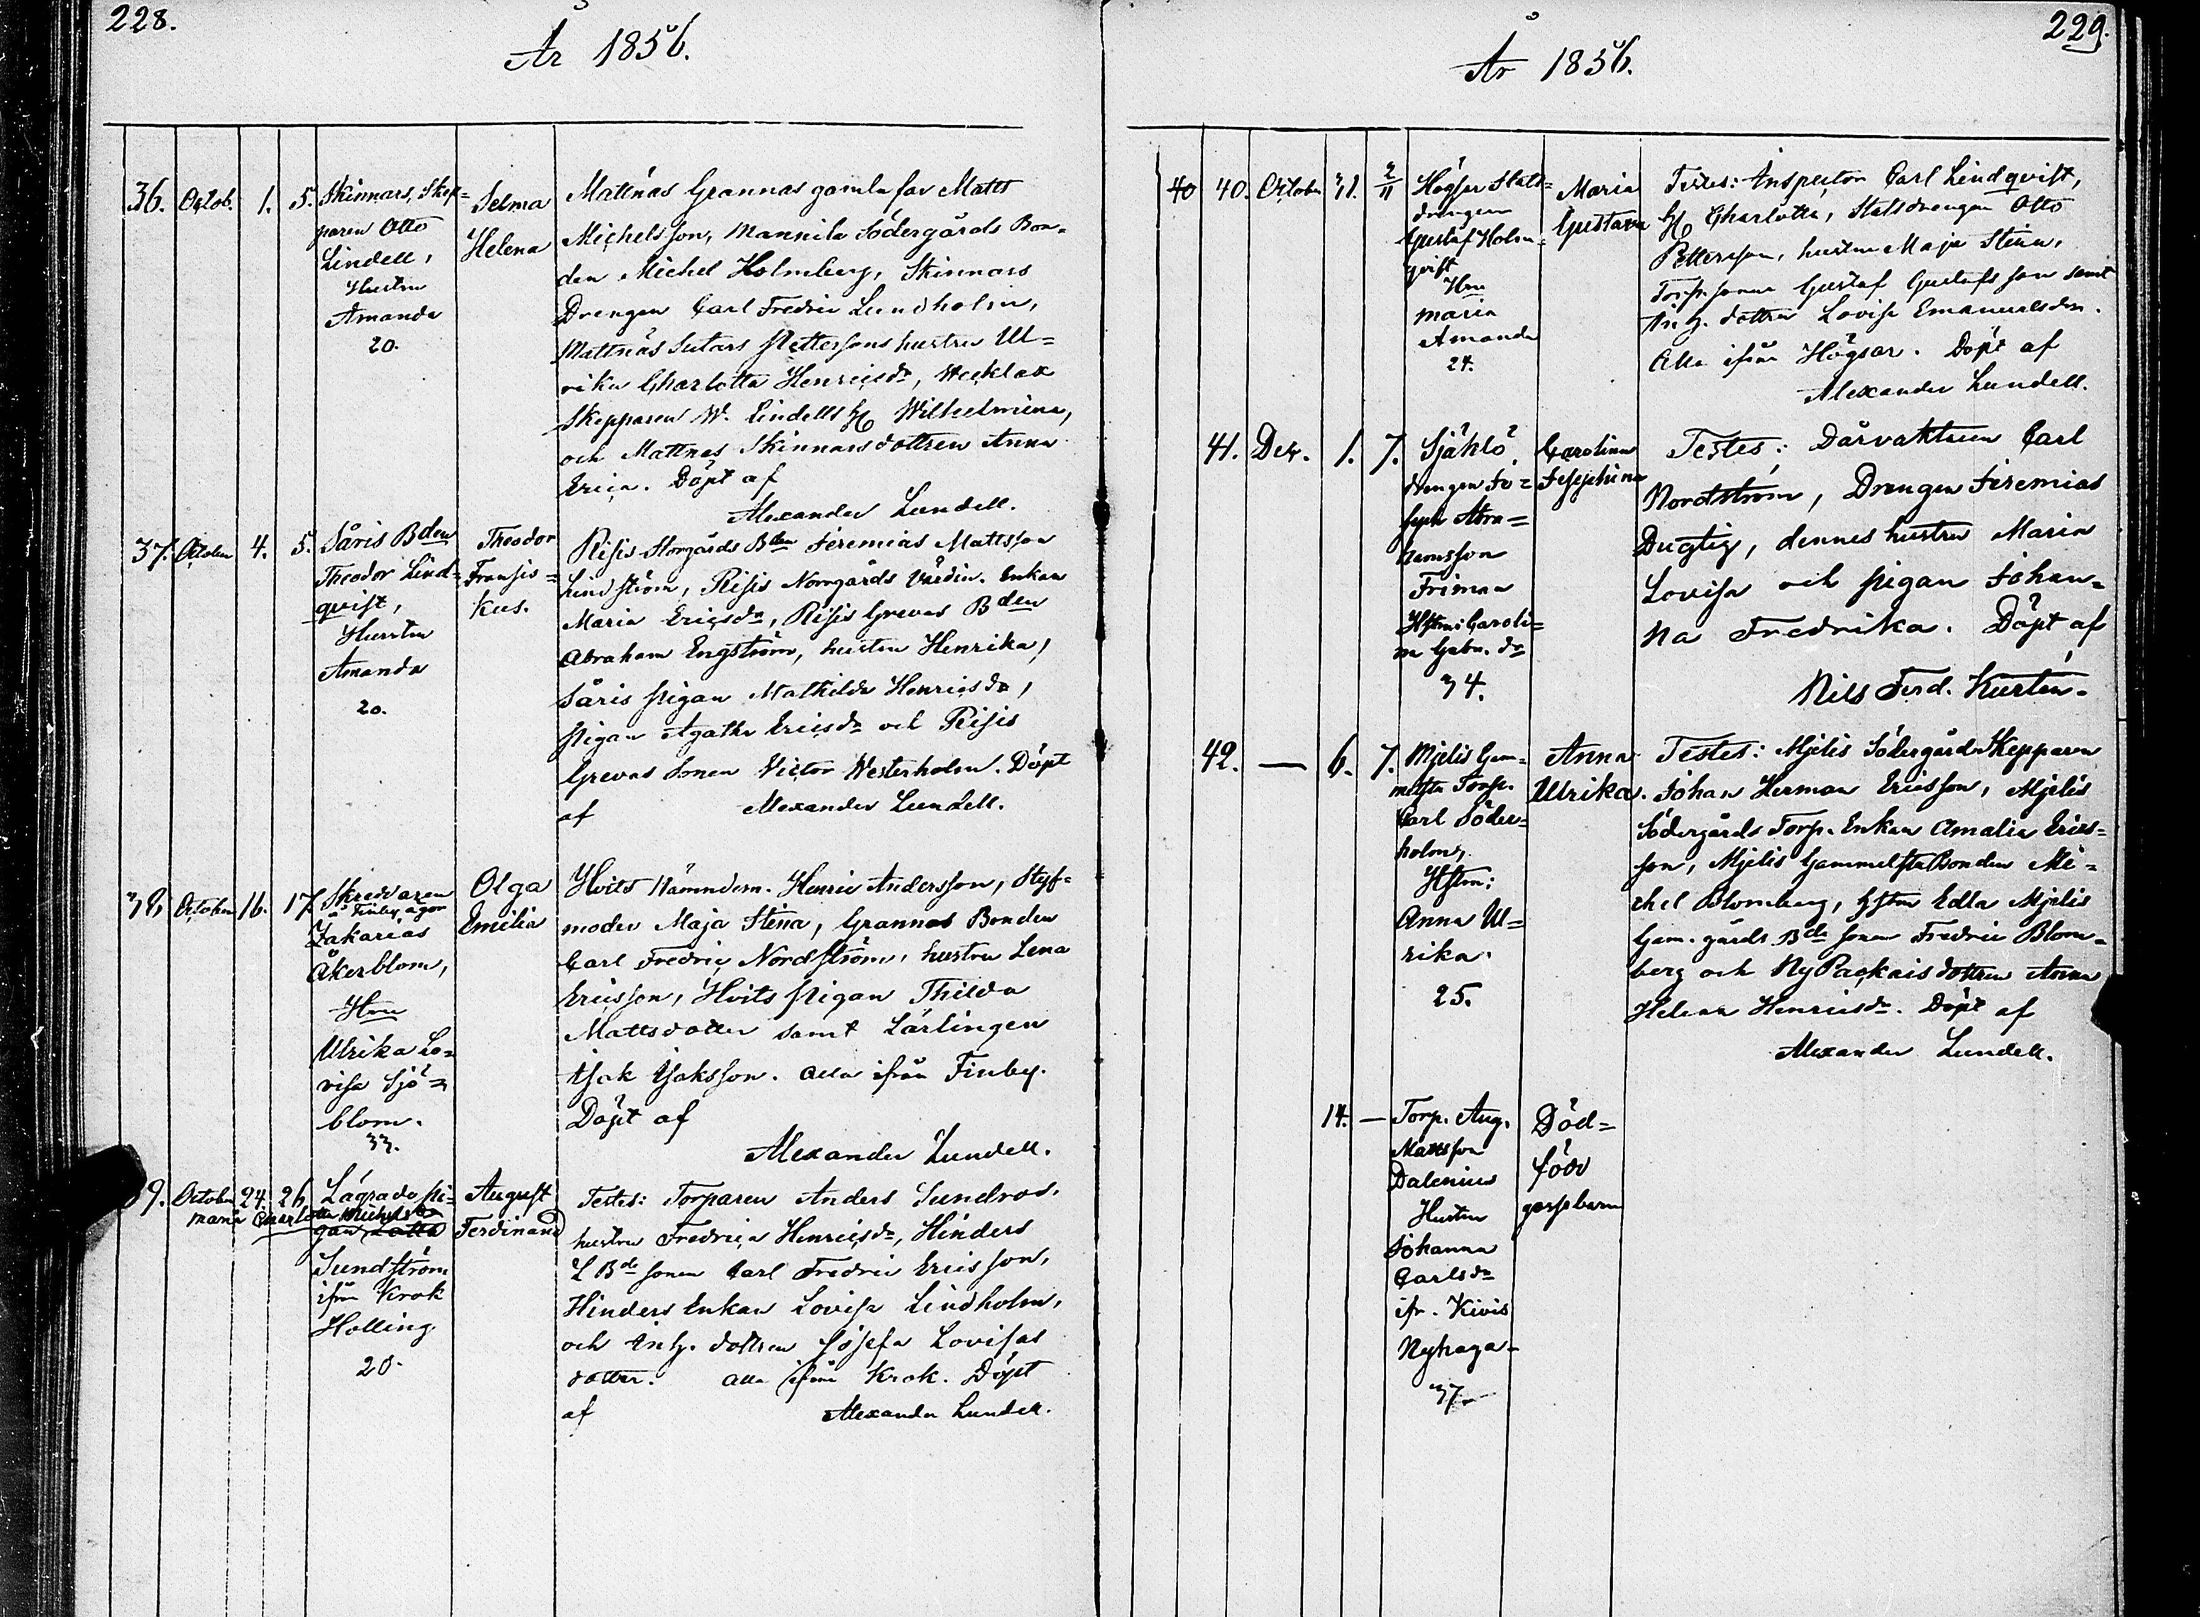 228.
År 1856.
36. Octob. 1. 5. Skinnars, Skep=
paren Otto
Lindell,
Hustru
Amanda
20.
Selma
Helena
Mattnäs Grannas gamla far Matts
Michelsson, Mannila Södergårds Bon=
den Michel Holmberg, Skinnars
Drengen Carl Fredric Lundholm,
Mattnäs Sutars Pettersons hustru Ul=
rika Charlotta Henricsdr, Wecklax
Skepparen W. Lindells H Wilhelmina,
och Mattnäs Skinnarsdottren Anna
Erica. Döpt af
Alexander Lundell.
37. October 4. 5. Såris Bden
Theodor Lind=
qvist,
Hustru
Amanda
20.
Theodor
Fransis=
kus.
Risis Storgårds Bden Jeremias Mattsson
Lindström, Risis Norrgårds Värdin. Enkan
Maria Ericsdr, Risis Grevas Bden
Abraham Engström, hustru Henrika,
Såris pigan Mathilda Henricsdr,
pigan Agatha Ericsdr och Risis
Grevas Sonen Victor Westerholm. Döpt
af Alexander Lundell.
38. October 16. 17. Skreddaren
å Finby egor
Zakarias
Åkerblom,
Hru
Ulrika Lo=
visa Sjö=
blom.
33.
Olga
Emilia
Hvits Nämndem. Henric Andersson, Styf=
moder Maja Stina, Grannas Bonden
Carl Fredric Nordström, hustru Lena
Ericsson, Hvits pigan Thilda
Mattsdotter samt Lärlingen
Isak Isaksson. Alla ifrån Finby.
Döpt af
Alexander Lundell.
39. October 24. 26. Lägrade pi=
Maria Charlotta Michelsdr
gan Lotta
Sundström
ifrån Krok
Holling
20.
August
Ferdinand
Testes: Torparen Anders Sundroos,
hustru Fredrica Henricsdr, Hinders
L Bde sonen Carl Fredric Ericsson,
Hinders Enkan Lovisa Lindholm,
och Inh. dottren Josefa Lovisas
dotter. Alla ifrån Krok. Döpt
af Alexander Lundell.
229.
År 1856.
40 40. October 31. 2/11 Högsar Stats=
drengen
Gustaf Holm=
qvist
Hru
Maria
Amanda
24.
Maria
Gustava
Testes: Inspector Carl Lindqvist,
H Charlotta, Statsdrengen Otto
Pettersson, hustru Maja Stina,
Torp.sonen Gustaf Gustafsson samt
Inh. dottren Lovisa Emanuelsdr.
Alla ifrån Högsar. Döpt af
Alexander Lundell.
41. Dec. 1. 7. Själlö
drengen Jo=
sef Abra=
hamsson
Friman
Hstru: Caroli=
na Gabr. dr
34.
Carolina
Josephina
Testes: Dårvaktaren Carl
Nordström, Drengen Jeremias
Dugtig, dennes hustru Maria
Lovisa och pigan Johan=
na Fredrika. Döpt af
Nils Ferd. Kurtén.
42. — 6. 7. Mjelis Gam=
melsta Torp.
Carl Söder=
holm,
Hstru:
Anna Ul=
rika.
25.
Anna
Ulrika.
Testes: Mjelis Södergårds Skepparen
Johan Herman Ericsson, Mjelis
Södergårds Torp. Enkan Amalia Erics=
son, Mjelis Gammelsta Bonden Mi=
chel Blomberg, Hstru Edla Mjelis
Gam. gårds Bde sonen Fredric Blom=
berg och Ny Packais dottren Anna
Helena Henricsdr. Döpt af
Alexander Lundell.
14. — Torp. Aug.
Mattsson
Dalenius
Hustru
Johanna
Carlsdr
ifr. Kivis
Nyhaga
37.
Död=
född
gossebarn